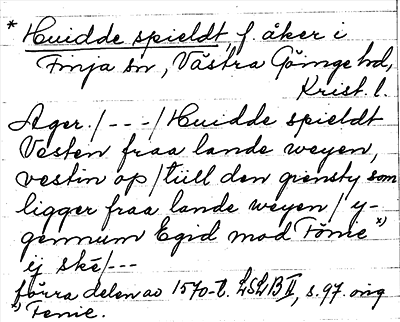 * Huidde spieldt f. åker i
Finja sn, Västra Göinge hd,
Krist. l.
Ager. /---/ Huidde spieldt
Vesten fraa lande weyen,
vestin op / tiill den giensty som
ligger fraa lande weyen / y-
gennum Egid mod Tönie x)
ij ské /---
förra delen av 1570-t. LSLB II, s. 97. orig
x) Tenie.